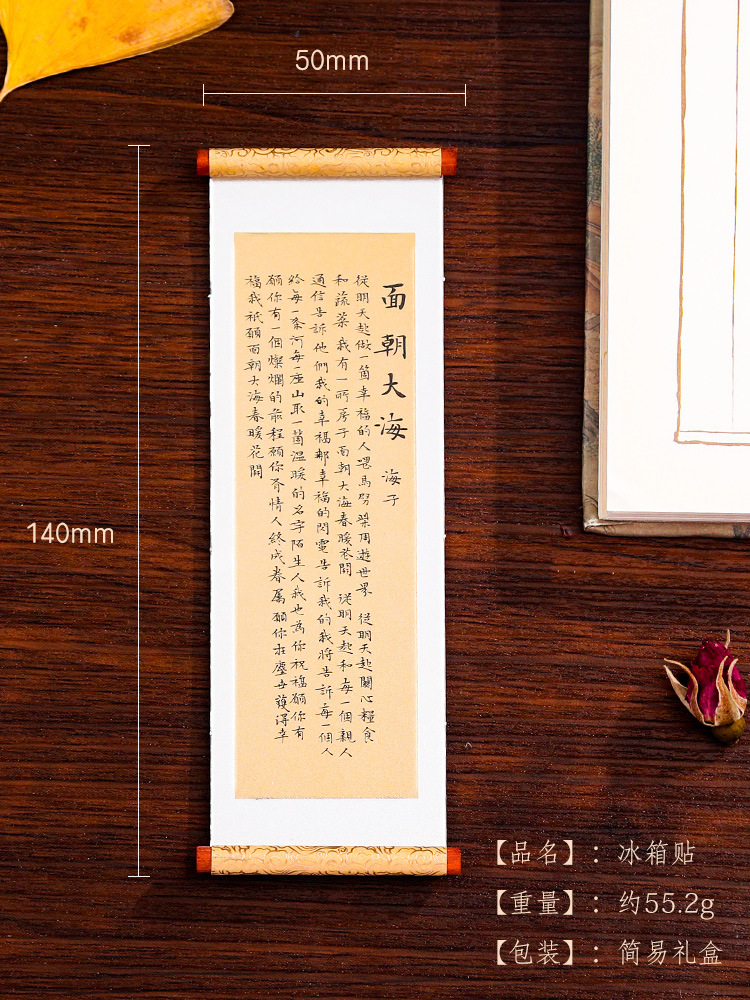 50mm
140mm
面朝大海 海子
從明天起做一箇幸福的人喂馬劈柴周遊世界 從明天起關心糧食
和蔬菜我有一所房子面朝大海春暖花開 從明天起和每一個親人
通信告訴他們我的幸福那幸福的閃電告訴我的我將告訴每一個人
給每一条河每一座山取一箇溫暖的名字陌生人我也為你祝福願你有
願你有一個燦爛的前程願你有情人終成眷屬願你在塵世獲得幸
福我祇願面朝大海春暖花開
【品名】：冰箱贴
【重量】：约55.2g
【包装】：简易礼盒